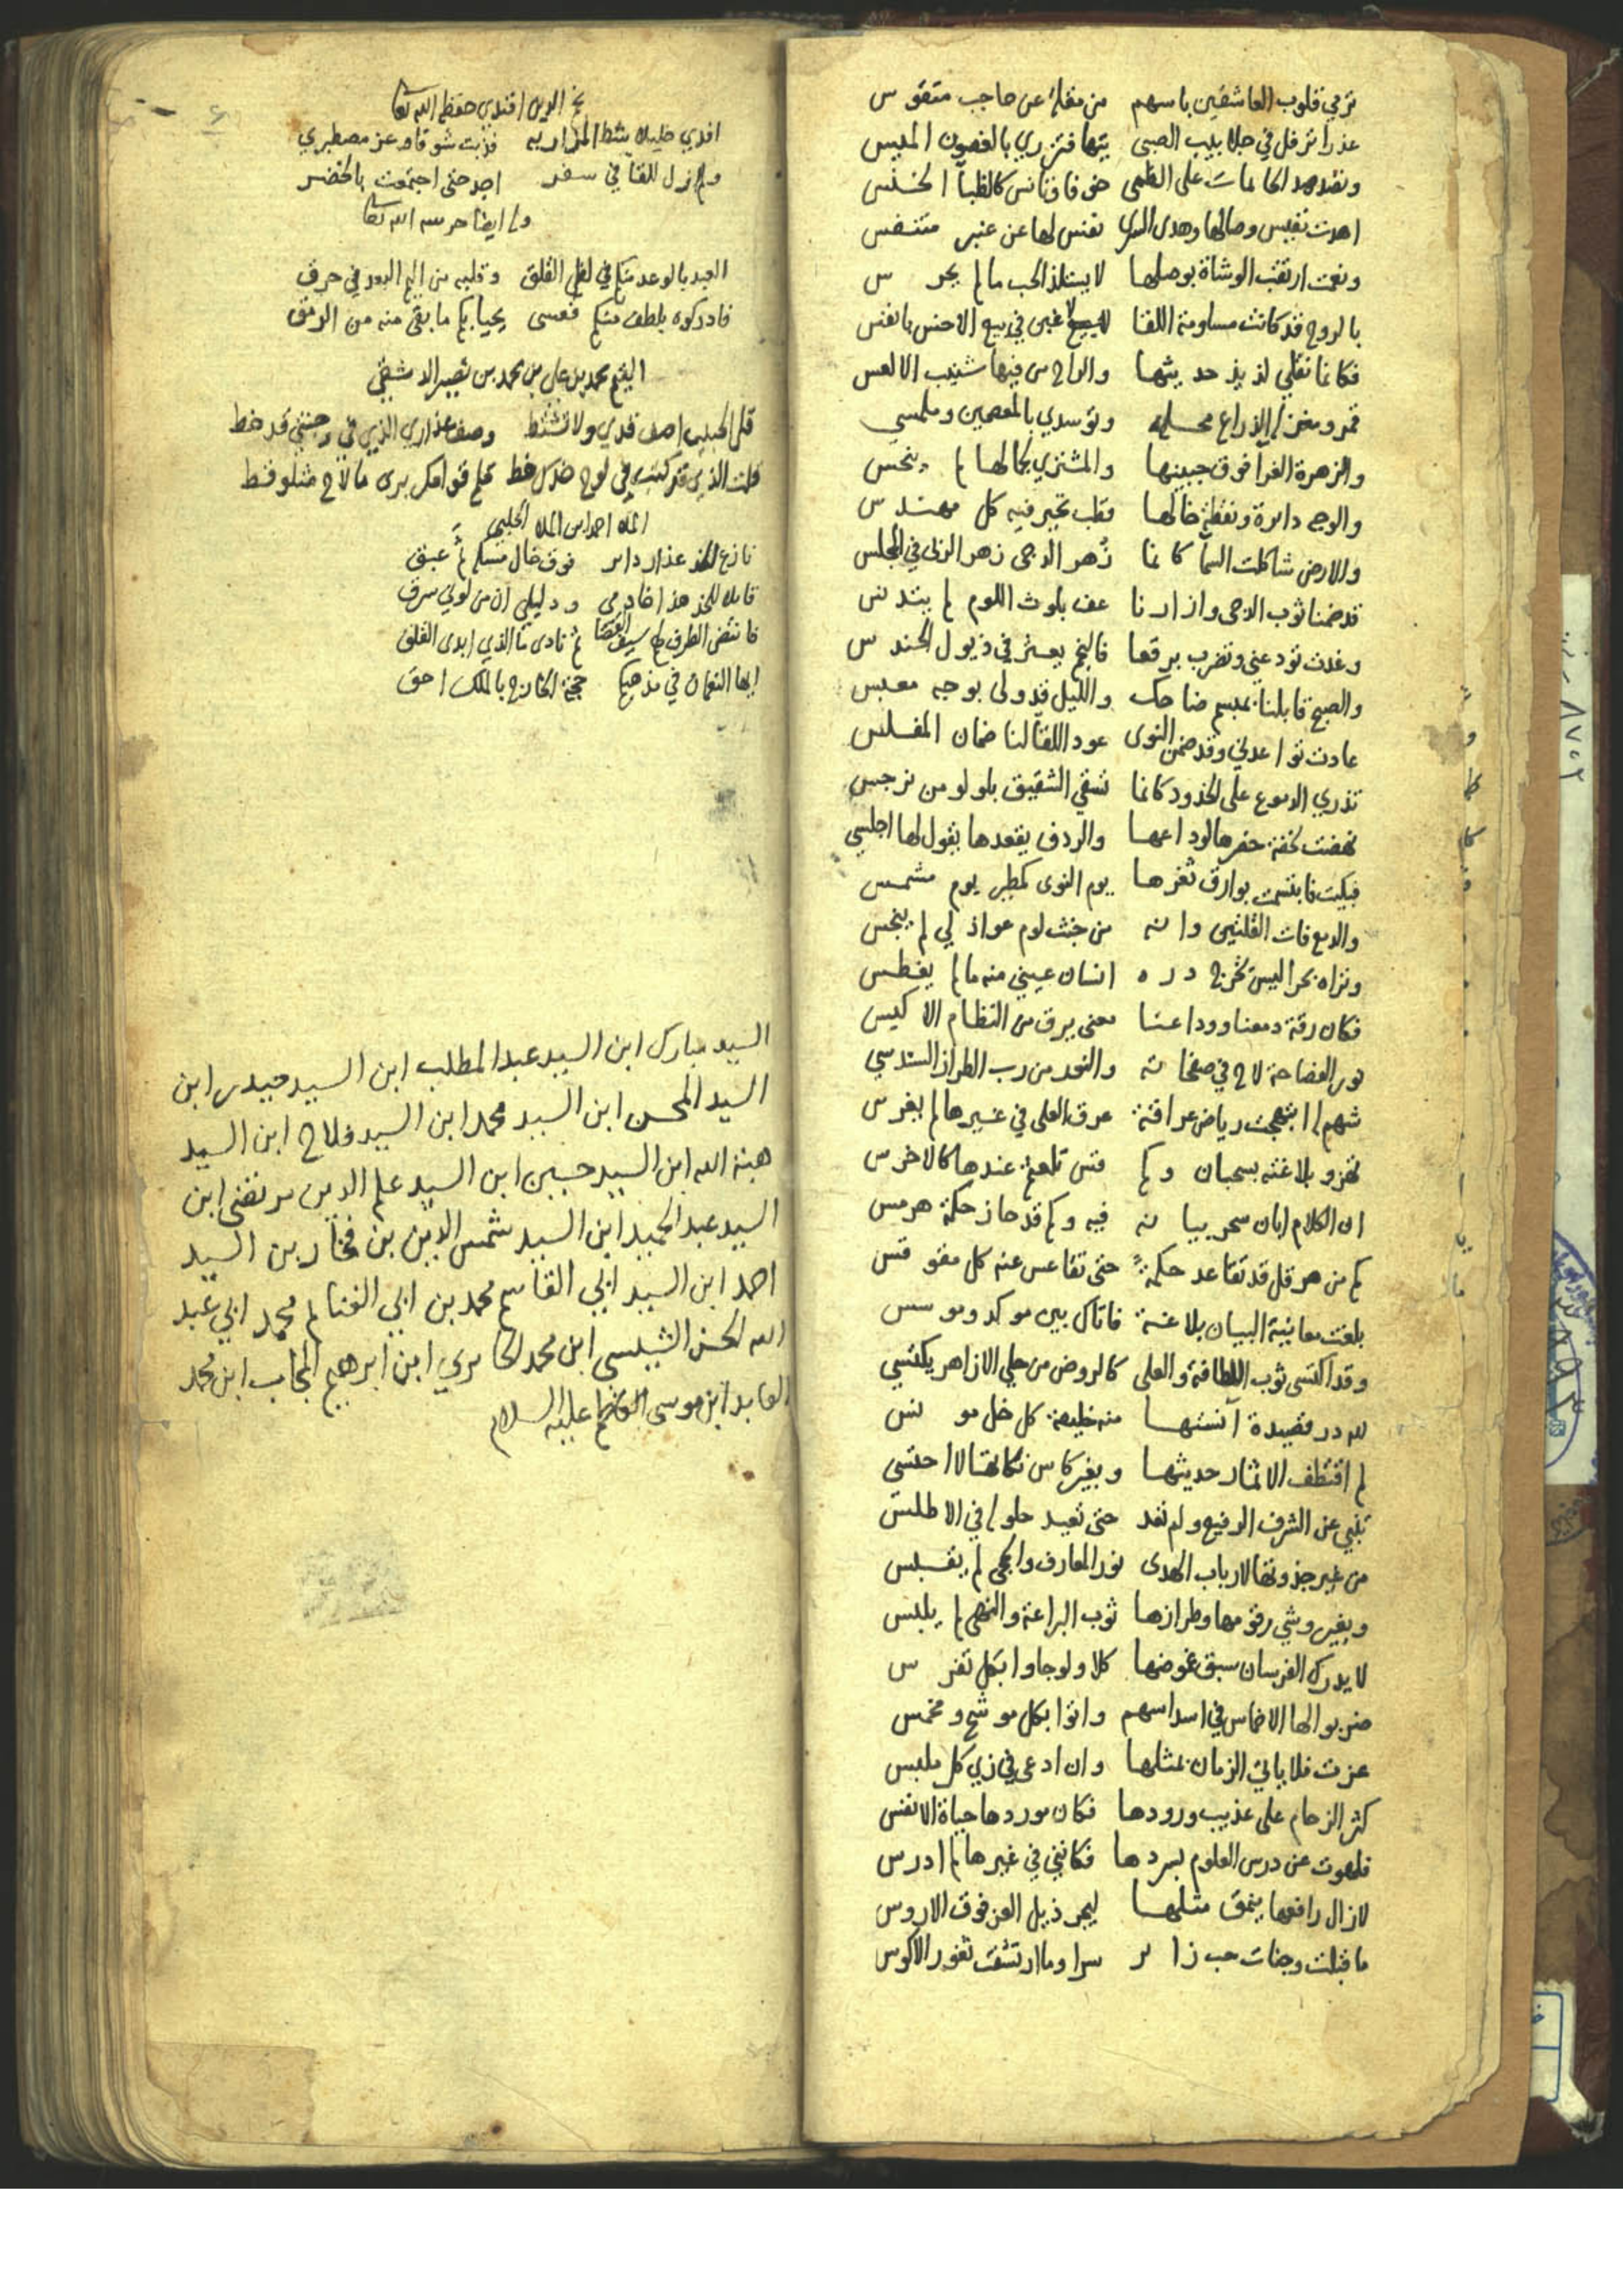 ترمي قلوب العاشقين باسهم من مقلة عن حاجب متقوس
عذرا ترفل في جلابيب الصبى تيها فتزري بالغصون الميس
اهدت نفيس وصالها وهدى السرى نفس لها عن عنبر متنفس
وبقت ارتقب الوشاة بوصلها لا يستلذ الحب ما لم يحرس
بالروح قد كانت مساومة اللقا لا غبن في بيع الاخس بانفس
فكانما نقلي لذيذ حديثها والراح من فيها شنيب الالعس
والزهرة الغرا فوق جبينها والمشتري بكمالها لم ينحس
والوجه دايرة ونقطة خالها قطب تحير فيه كل مهندس
والارض شاكلت السما كانما زهر الدجى زهر الربى في المجلس
قد ضمنا ثوب الدجى وازارنا عف بلوث اللوم لم يتدنس
وغدت تودعني وتضرب برقعا فالنجم يعثر في ذيول الحندس
والصبح قابلنا بمبسم ضاحك والليل قد ولى بوجه معبس
عادت تواعدني وقد ضمن النوى عود اللقا لنا ضمان المفلس
تذري الدموع على الخدود كانما تسقي الشقيق بلولو من نرجس
نهضت بخفة خصرها لوداعها والردف يقعدها يقول لها اجلسي
فبكيت فابتسمت بوارق ثغرها يوم النوى كمطير يوم مشمس
والدمع فات القلتين وانه من خبث لوم عواذلي لم ينجس
وتراه بحرا ليس تخرج دره انسان عيني منه ما لم يغطس
فكان رقة دمعنا ووداعنا معنى يرق من النظام الاكيس
نور الفصاحة لاح في صفحاته والنحد من رب الطراز السندسي
شهم له ابتهجت رياض عراقة عرق العلى في غيرها لم يغرس
تهزو بلاغته بسحبان وكم قس تلعثم عندها كالاخرس
ان الكلام ابان سحر بيانه فيه وكم قد حاز حكمة هرمس
كم من هرقل قد تقاعد حكمة حتى تقاعس عنه كل مقوقس
بلغت معانيه البيان بلاغة فاتاك بين موكد وموسس
وقد اكتسى ثوب اللطافة والعلى كالروض من حلي الازاهر يكتسي
لله در قصيدة آنستها منه خليعة كل خل مونس
لم اقتطف الا ثمار حديثها وبغير كاس نكاتها لا احتسي
تنبي عن الشرف الرفيع ولم تفد حتى تعيد حلوله في الاطلس
من غير جذوتها لارباب الهدى نور المعارف والحجى لم يقبس
وبغير وشي رقومها وطرازها ثوب البراعة والنهى لم يلبس
لا يدرك الفرسان سبق غموضها كلا ولو جاوا بكل تفرس
ضربوا لها الاخماس في اسداسهم واتوا بكل موشح ومخمس
عزت فلا ياتي الزمان بمثلها وان ادعى في زي كل ملبس
كثر الزحام على عذيب ورودها فكان موردها حياة الانفس
فلهوت عن درس العلوم بسردها فكانني في غيرها لم ادرس
لازال رافعها ينمق مثلها ليجر ذيل العز فوق الاروس
ما قبلت وجنات حب زاير سرا وما ارتشفت ثغور الاكوس
نجم الدين افندي حفظه الله تعالى
افدي خليلا شط المزار به فذبت شوقا وعز مصطبري
ولم ازل للقا في سفر اجد حتى اجتمعت بالخضر
وله ايضا حرسه الله تعالى
العبد بالوعد منكم في لظى القلق وقلبه من اليم البعد في حرق
فادركوه بلطف منكم فعسى يحيا بكم ما بقى منه من الرمق
الشيخ محمد بن علي بن محمد بن نصير الدمشقي
قال الحبيب اصف قدي ولا تشتط وصف عذاري الذي في وجنتي قد خط
المللا احمد ابن الملا الحلبي
نازع الخد عذار داير فوق خال مسكه ثم عبق
قايلا للخد هذا خادمي ودليلي ان من لوني سرق
فانتضى الطرف له سيف القضا ثم نادى ما الذي ابدى القلق
ايها النعمان في مذهبكم حجة الخارج بالملك احق
السيد مبارك ابن السيد عبد المطلب ابن السيد حيدر ابن
السيد المحسن ابن السيد محمد ابن السيد فلاح ابن السيد
هبة الله ابن السيد حسين ابن السيد علم الدين مرتضى ابن
السيد عبد الحميد ابن السيد شمس الدين بن فخار بن السيد
احمد ابن السيد ابي القاسم محمد بن ابي الغنايم محمد ابي عبد
الله الحسن الشيبسى ابن محمد الحايري ابن ابرهيم المجاب ابن محمد
العابد ابن موسى الكاظم عليه السلام